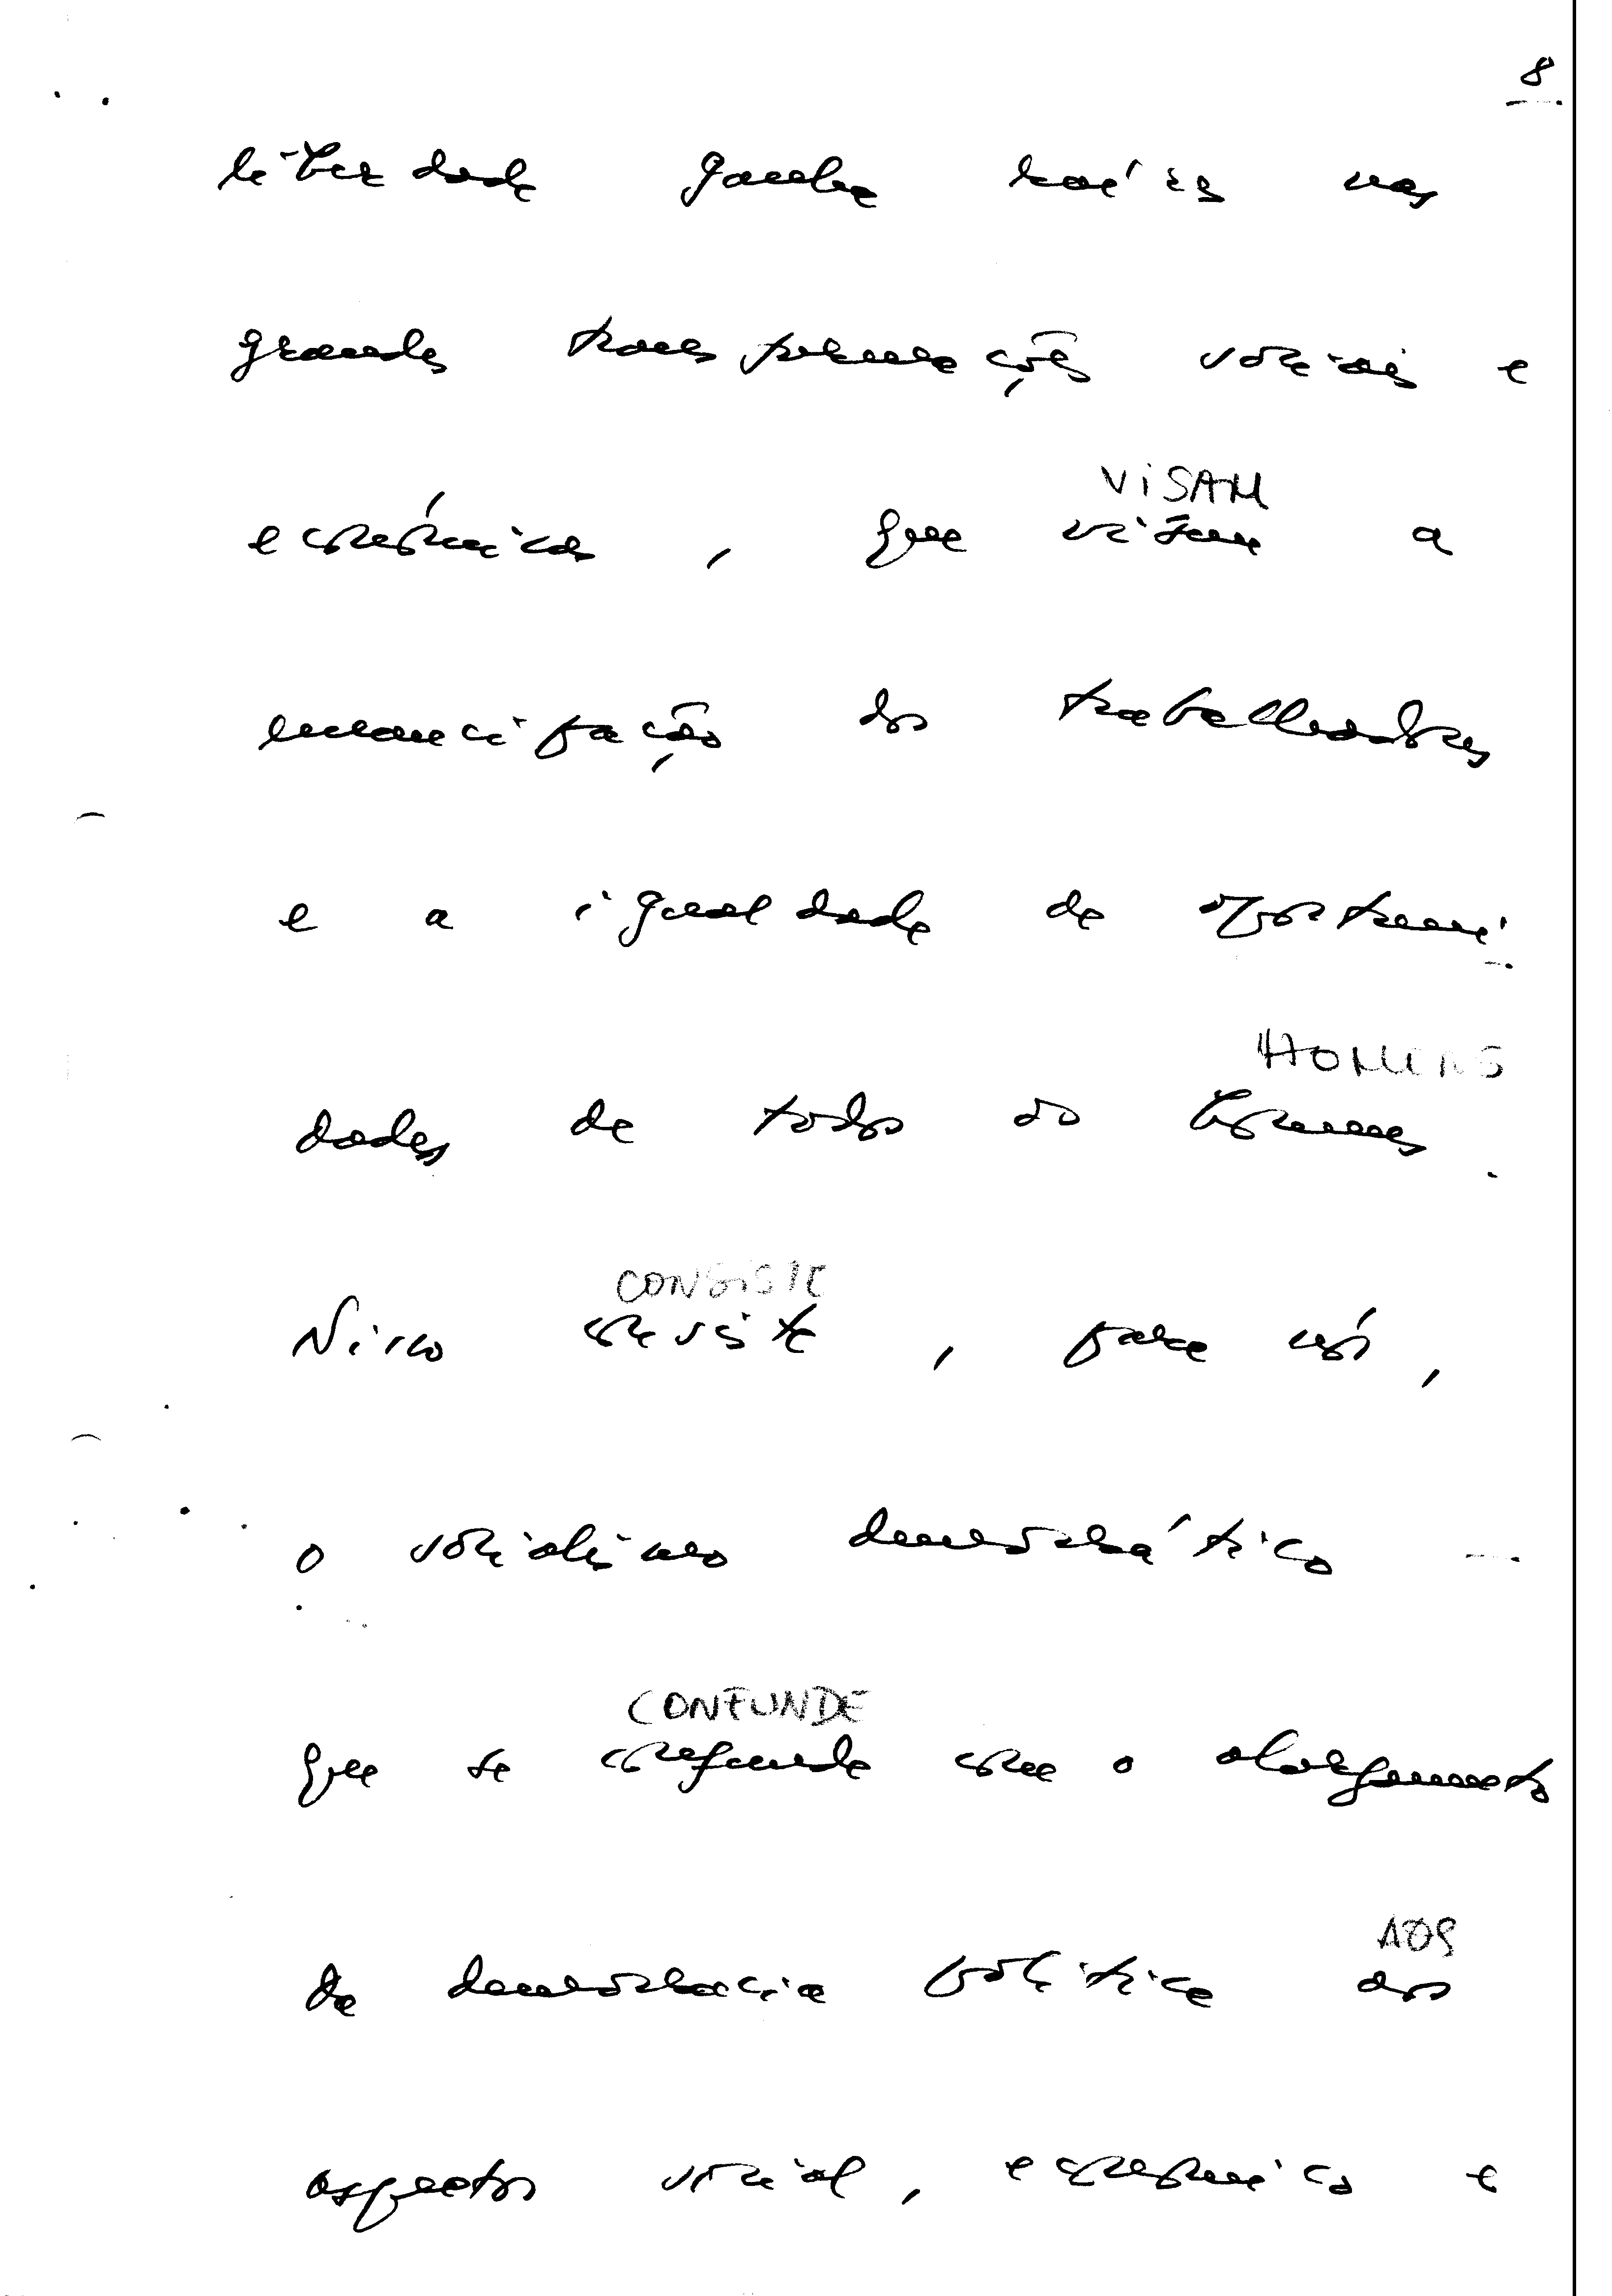 8
liberdade ganha raízes nas
grandes transformações sociais e
económicas, que visam a
VISAM
emancipação dos trabalhadores
e a igualdade de oportuni-
dades de todos os homens.
HOMENS
Nisso consiste, para nós,
CONSISTE
o socialismo democrático -
que se confunde com o alargamento
CONFUNDE
da democracia política aos
AOS
aspectos social, económico e